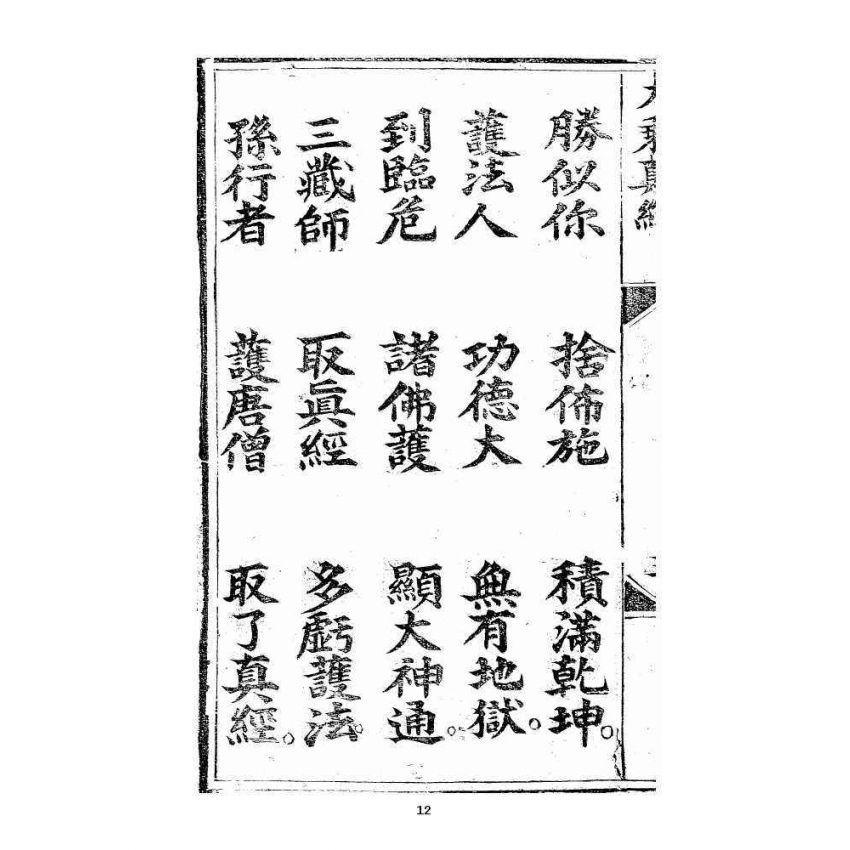 大乘真經
勝似你 捨佈施 積滿乾坤。
護法人 功德大 無有地獄。
到臨危 諸佛護 顯大神通。
三藏師 取眞經 多虧護法。
孫行者 護唐僧 取了真經。
12